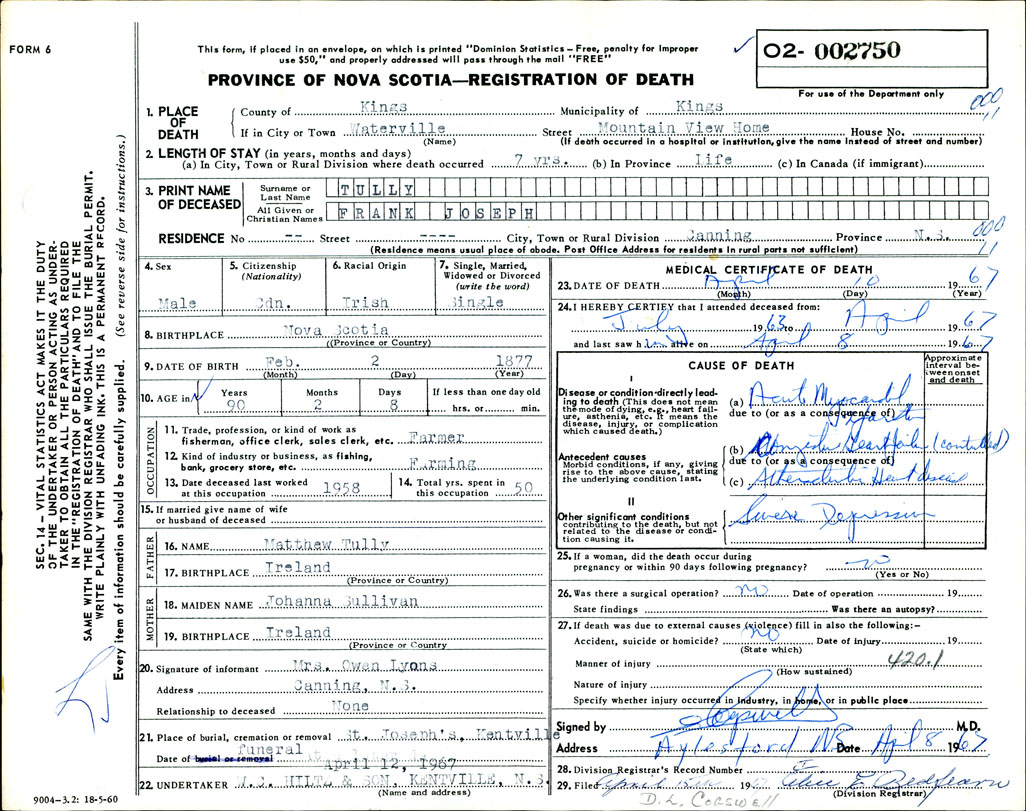 FORM 6
This form, if placed in an envelope, on which is printed "Dominion Statistics – Free, penalty for improper
use $50," and properly addressed will pass through the mail "FREE"
02- 002750
PROVINCE OF NOVA SCOTIA—REGISTRATION OF DEATH
For use of the Department only
000
11
1. PLACE OF DEATH
County of Kings Municipality of Kings
If in City or Town Waterville Street Mountain View Home House No.
(Name) (If death occurred in a hospital or institution, give the name instead of street and number)
2. LENGTH OF STAY (in years, months and days)
(a) In City, Town or Rural Division where death occurred 7 yrs. (b) In Province life (c) In Canada (if immigrant)
3. PRINT NAME OF DECEASED
Surname or Last Name TULLY
All Given or Christian Names FRANK JOSEPH
000
11
RESIDENCE No -- Street ---- City, Town or Rural Division Canning Province N.S.
(Residence means usual place of abode. Post Office Address for residents in rural parts not sufficient)
4. Sex
Male
5. Citizenship
(Nationality)
Cdn.
6. Racial Origin
Irish
7. Single, Married,
Widowed or Divorced
(write the word)
Single
8. BIRTHPLACE Nova Scotia
((Province or Country)
9. DATE OF BIRTH Feb. 2 1877
(Month) (Day) (Year)
10. AGE in
Years Months Days If less than one day old
90 2 8 hrs. or min.
OCCUPATION
11. Trade, profession, or kind of work as
fisherman, office clerk, sales clerk, etc. Farmer
12. Kind of industry or business, as fishing,
bank, grocery store, etc. Farming
13. Date deceased last worked
at this occupation 1958
14. Total yrs. spent in
this occupation 50
15. If married give name of wife
or husband of deceased
FATHER
16. NAME Matthew Tully
17. BIRTHPLACE Ireland
(Province or Country)
MOTHER
18. MAIDEN NAME Johanna Sullivan
19. BIRTHPLACE Ireland
(Province or Country
20. Signature of informant Mrs. Owen Lyons
Address Canning, N.S.
Relationship to deceased None
21. Place of burial, cremation or removal St. Joseph's, Kentville
funeral
Date of burial or removal April 12, 1967
22. UNDERTAKER W.C. HILTZ & SON, KENTVILLE, N.S.
(Name and address)
MEDICAL CERTIFICATE OF DEATH
23. DATE OF DEATH April 10 1967
(Month) (Day) (Year)
24. I HEREBY CERTIFY that I attended deceased from:
July 1963 to April 1967
and last saw him alive on April 8 1967
CAUSE OF DEATH
Approximate
interval be-
tween onset
and death
I
Disease or condition directly lead-
ing to death (This does not mean
the mode of dying, e.g., heart fail-
ure, asthenia, etc. It means the
disease, injury, or complication
which caused death.)
(a) Acute Myocardial
due to (or as a consequence of) Infarction
Antecedent causes
Morbid conditions, if any, giving
rise to the above cause, stating
the underlying condition last.
(b) Heart Failure (controlled)
due to (or as a consequence of)
(c) Heart disease
II
Other significant conditions
contributing to the death, but not
related to the disease or condi-
tion causing it.
Severe Depression
25. If a woman, did the death occur during
pregnancy or within 90 days following pregnancy? no
(Yes or No)
26. Was there a surgical operation? no Date of operation 19
State findings Was there an autopsy?
27. If death was due to external causes (violence) fill in also the following:–
Accident, suicide or homicide? no Date of injury 19
(State which)
Manner of injury 420.1
(How sustained)
Nature of injury
Specify whether injury occurred in industry, in home, or in public place
Signed by M.D.
Address Aylesford NS Date Apl 8 1967
28. Division Registrar's Record Number
29. Filed April 19
(Division Registrar)
D. L. COGSWELL
SEC. 14 – VITAL STATISTICS ACT MAKES IT THE DUTY
OF THE UNDERTAKER OR PERSON ACTING AS UNDER-
TAKER TO OBTAIN ALL THE PARTICULARS REQUIRED
IN THE "REGISTRATION OF DEATH" AND TO FILE THE
SAME WITH THE DIVISION REGISTRAR WHO SHALL ISSUE THE BURIAL PERMIT.
WRITE PLAINLY WITH UNFADING INK. THIS IS A PERMANENT RECORD.
Every item of information should be carefully supplied. (See reverse side for instructions.)
9004-3.2: 18-5-60